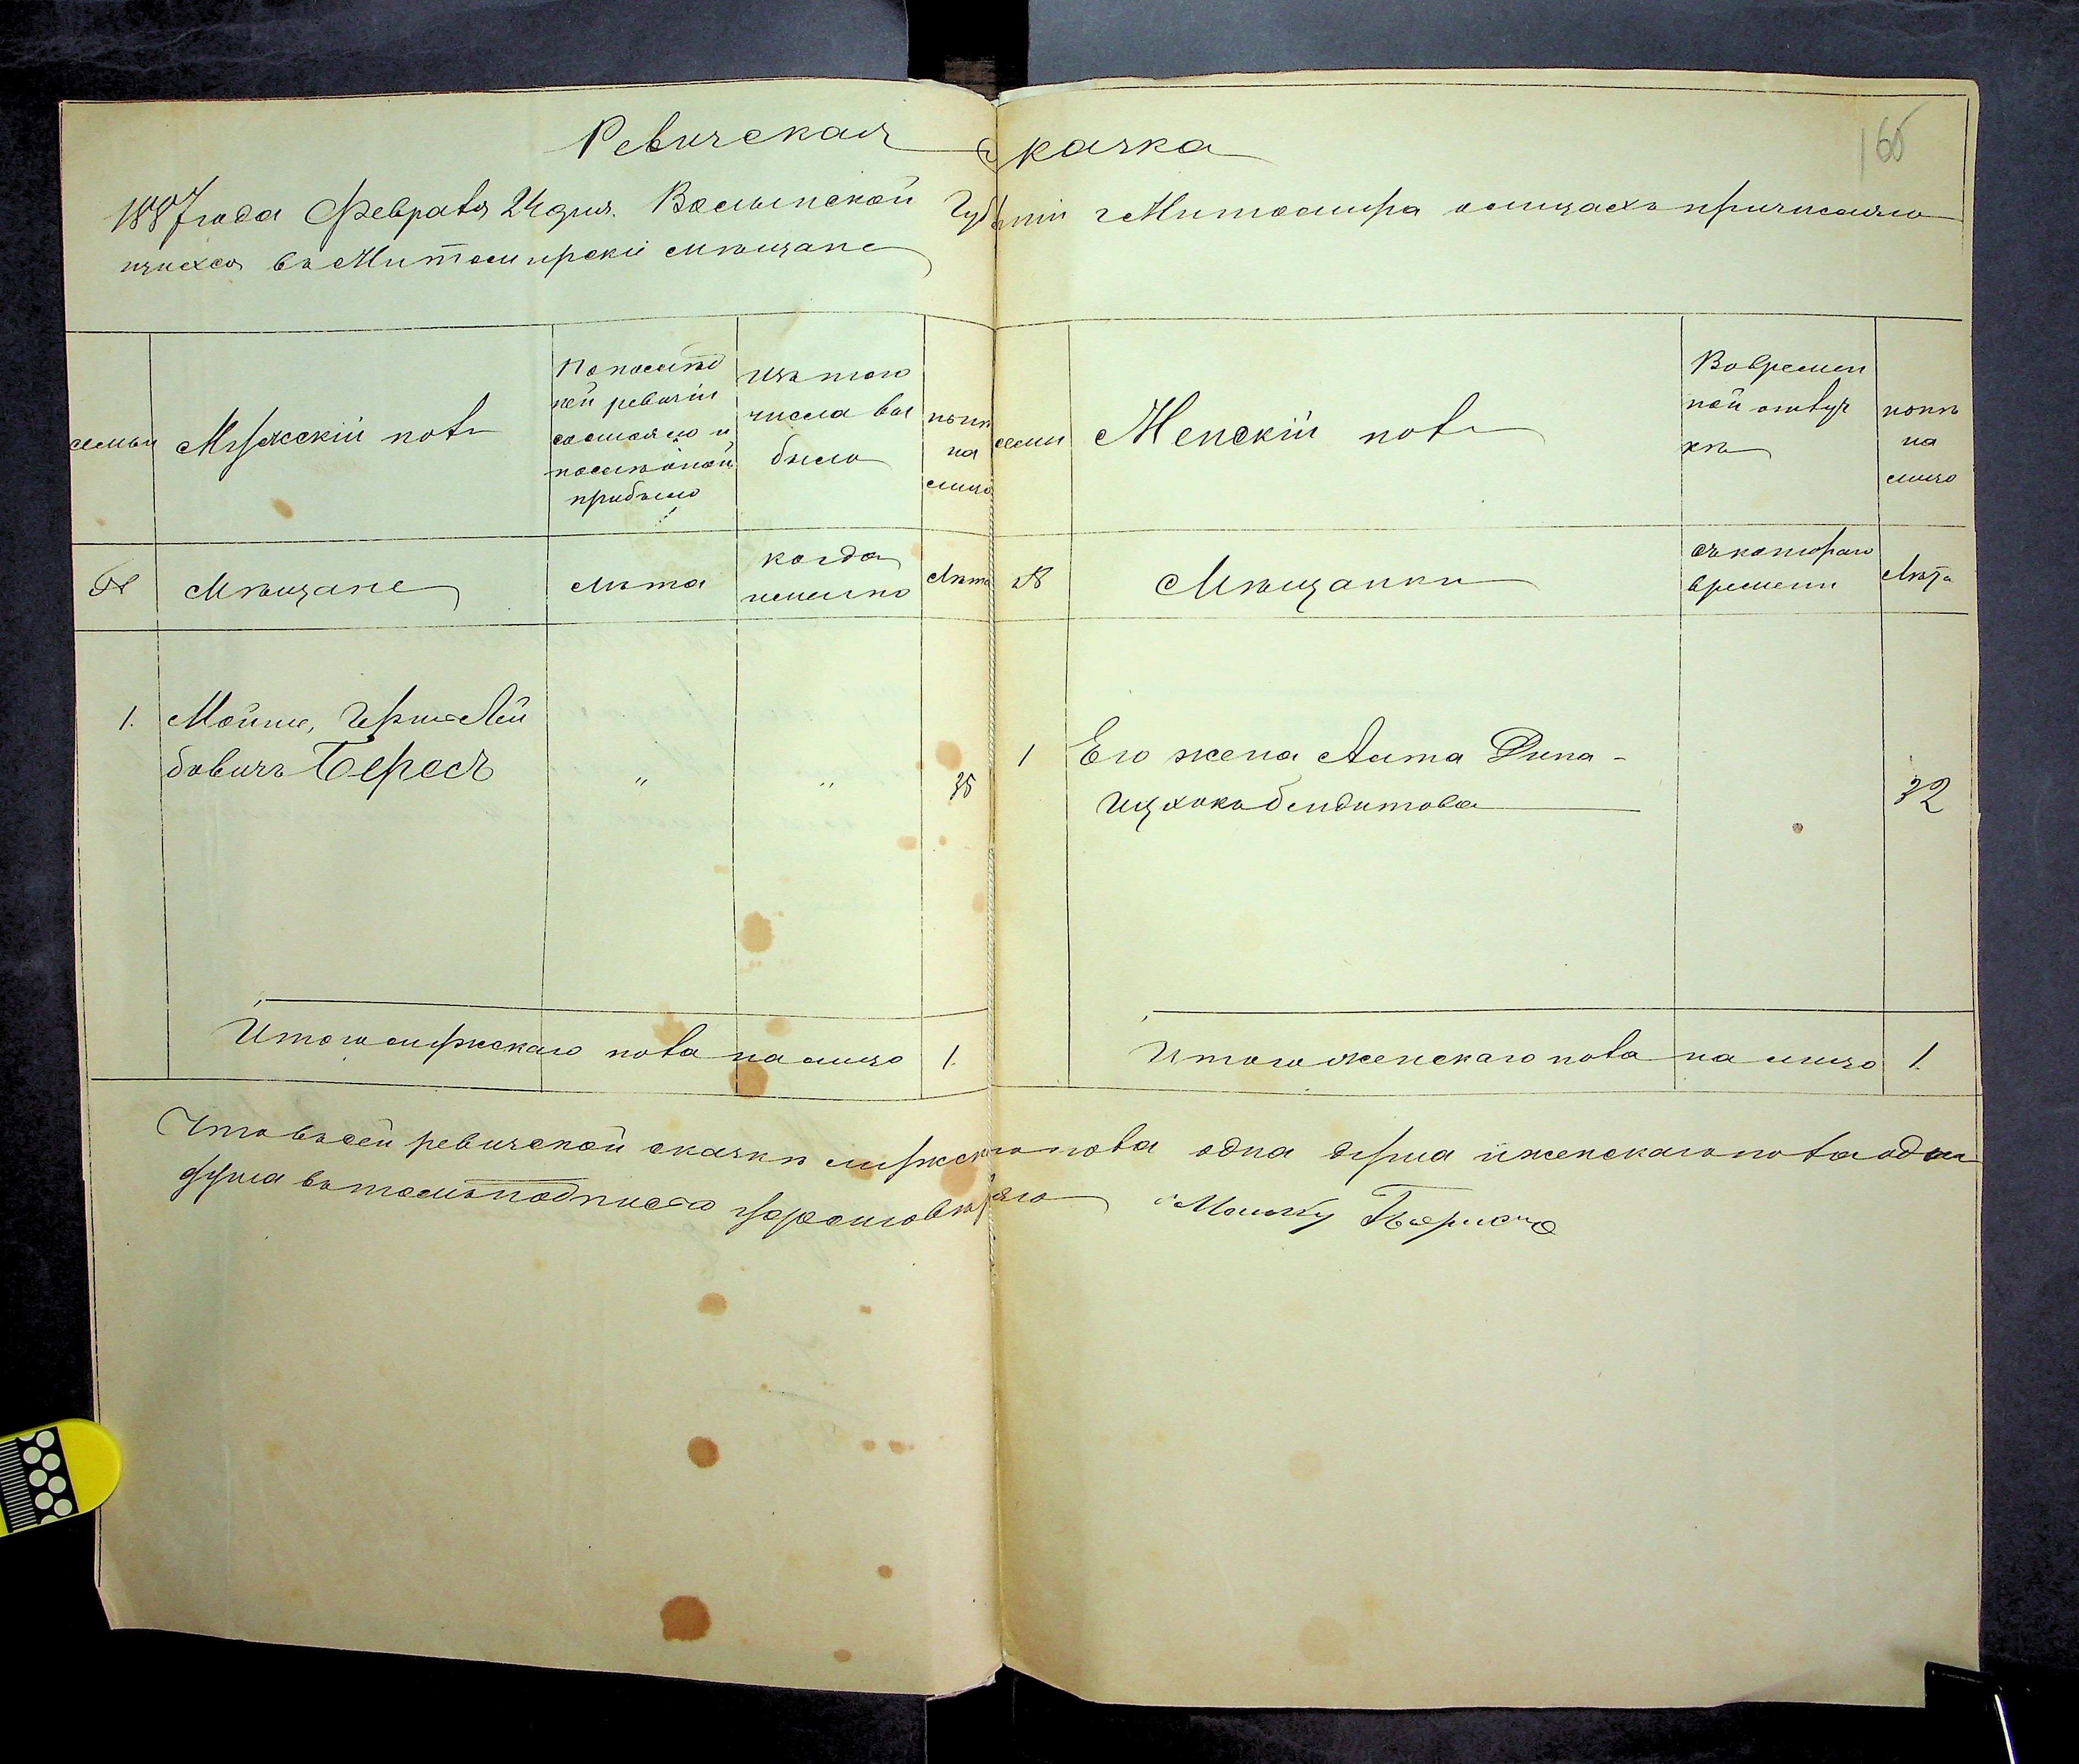 Ревизская Сказка
165
1887 года Февраля 24 дня. Волынской Губерніи г Житомира о лицахъ причисляю
щихся въ Житомирскіе мѣщане
семьи
Мужскій полъ
По послѣд
ней ревизіи
состояло и
послѣ оной
прибыло
Изъ того
числа вы
было
нынѣ
на
лицо
семьи
Женскій полъ
Во времен
ной отлуч
кѣ
нынѣ
на
лицо
№
Мѣщане
Лѣта
когда
именно
Лѣта
№
Мѣщанки
съ котораго
времени
Лѣта
1.
Мойше, Герш Лей
бовичъ Бересъ
"
"
35
1
Его жена Алта Рипа -
Ицхокъ Бендитова
32
Итого мужскаго пола на лицо 1.
Итого женскаго пола на лицо 1.
Что въ сей ревизской сказкѣ мужскаго пола одна душа и женскаго пола одна
душа въ томъ подписью удостовѣряю